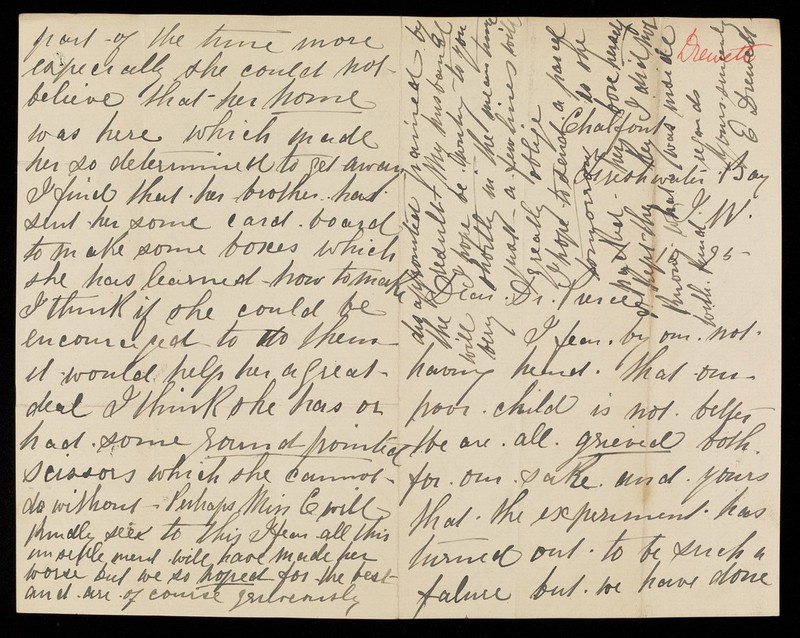 part of the time more
especially she could not
believe that her home
was here which made
her so determined to get away
I find that her brother has
sent her some card board
to make some boxes which
she has learned how to make
I think if she could be
encouraged to do them
it would help her a great
deal I think she has or
had some round pointed
scissors which she cannot
do without. Perhaps Miss C will
kindly seek to this I fear all this
unsettlement will have made her
worse but we so hoped for the best
and are of course grieviously
Drewett
Chalfont
Freshwater Bay
I. W.
95
Dear Dr. Pierce
I fear by our not
having heard that our
poor child is not better
We are all grieved both
for our sake and yours
that the experiment has
turned out to be such a
falure but we have done
disappointed pained by
the result. My husband
will I hope be writing to you
very shortly in the meantime
just a few lines will
greatly oblige
I hope to send a parcel
tomorrow as she
with kind regards
Yours sincerely
E Drewett